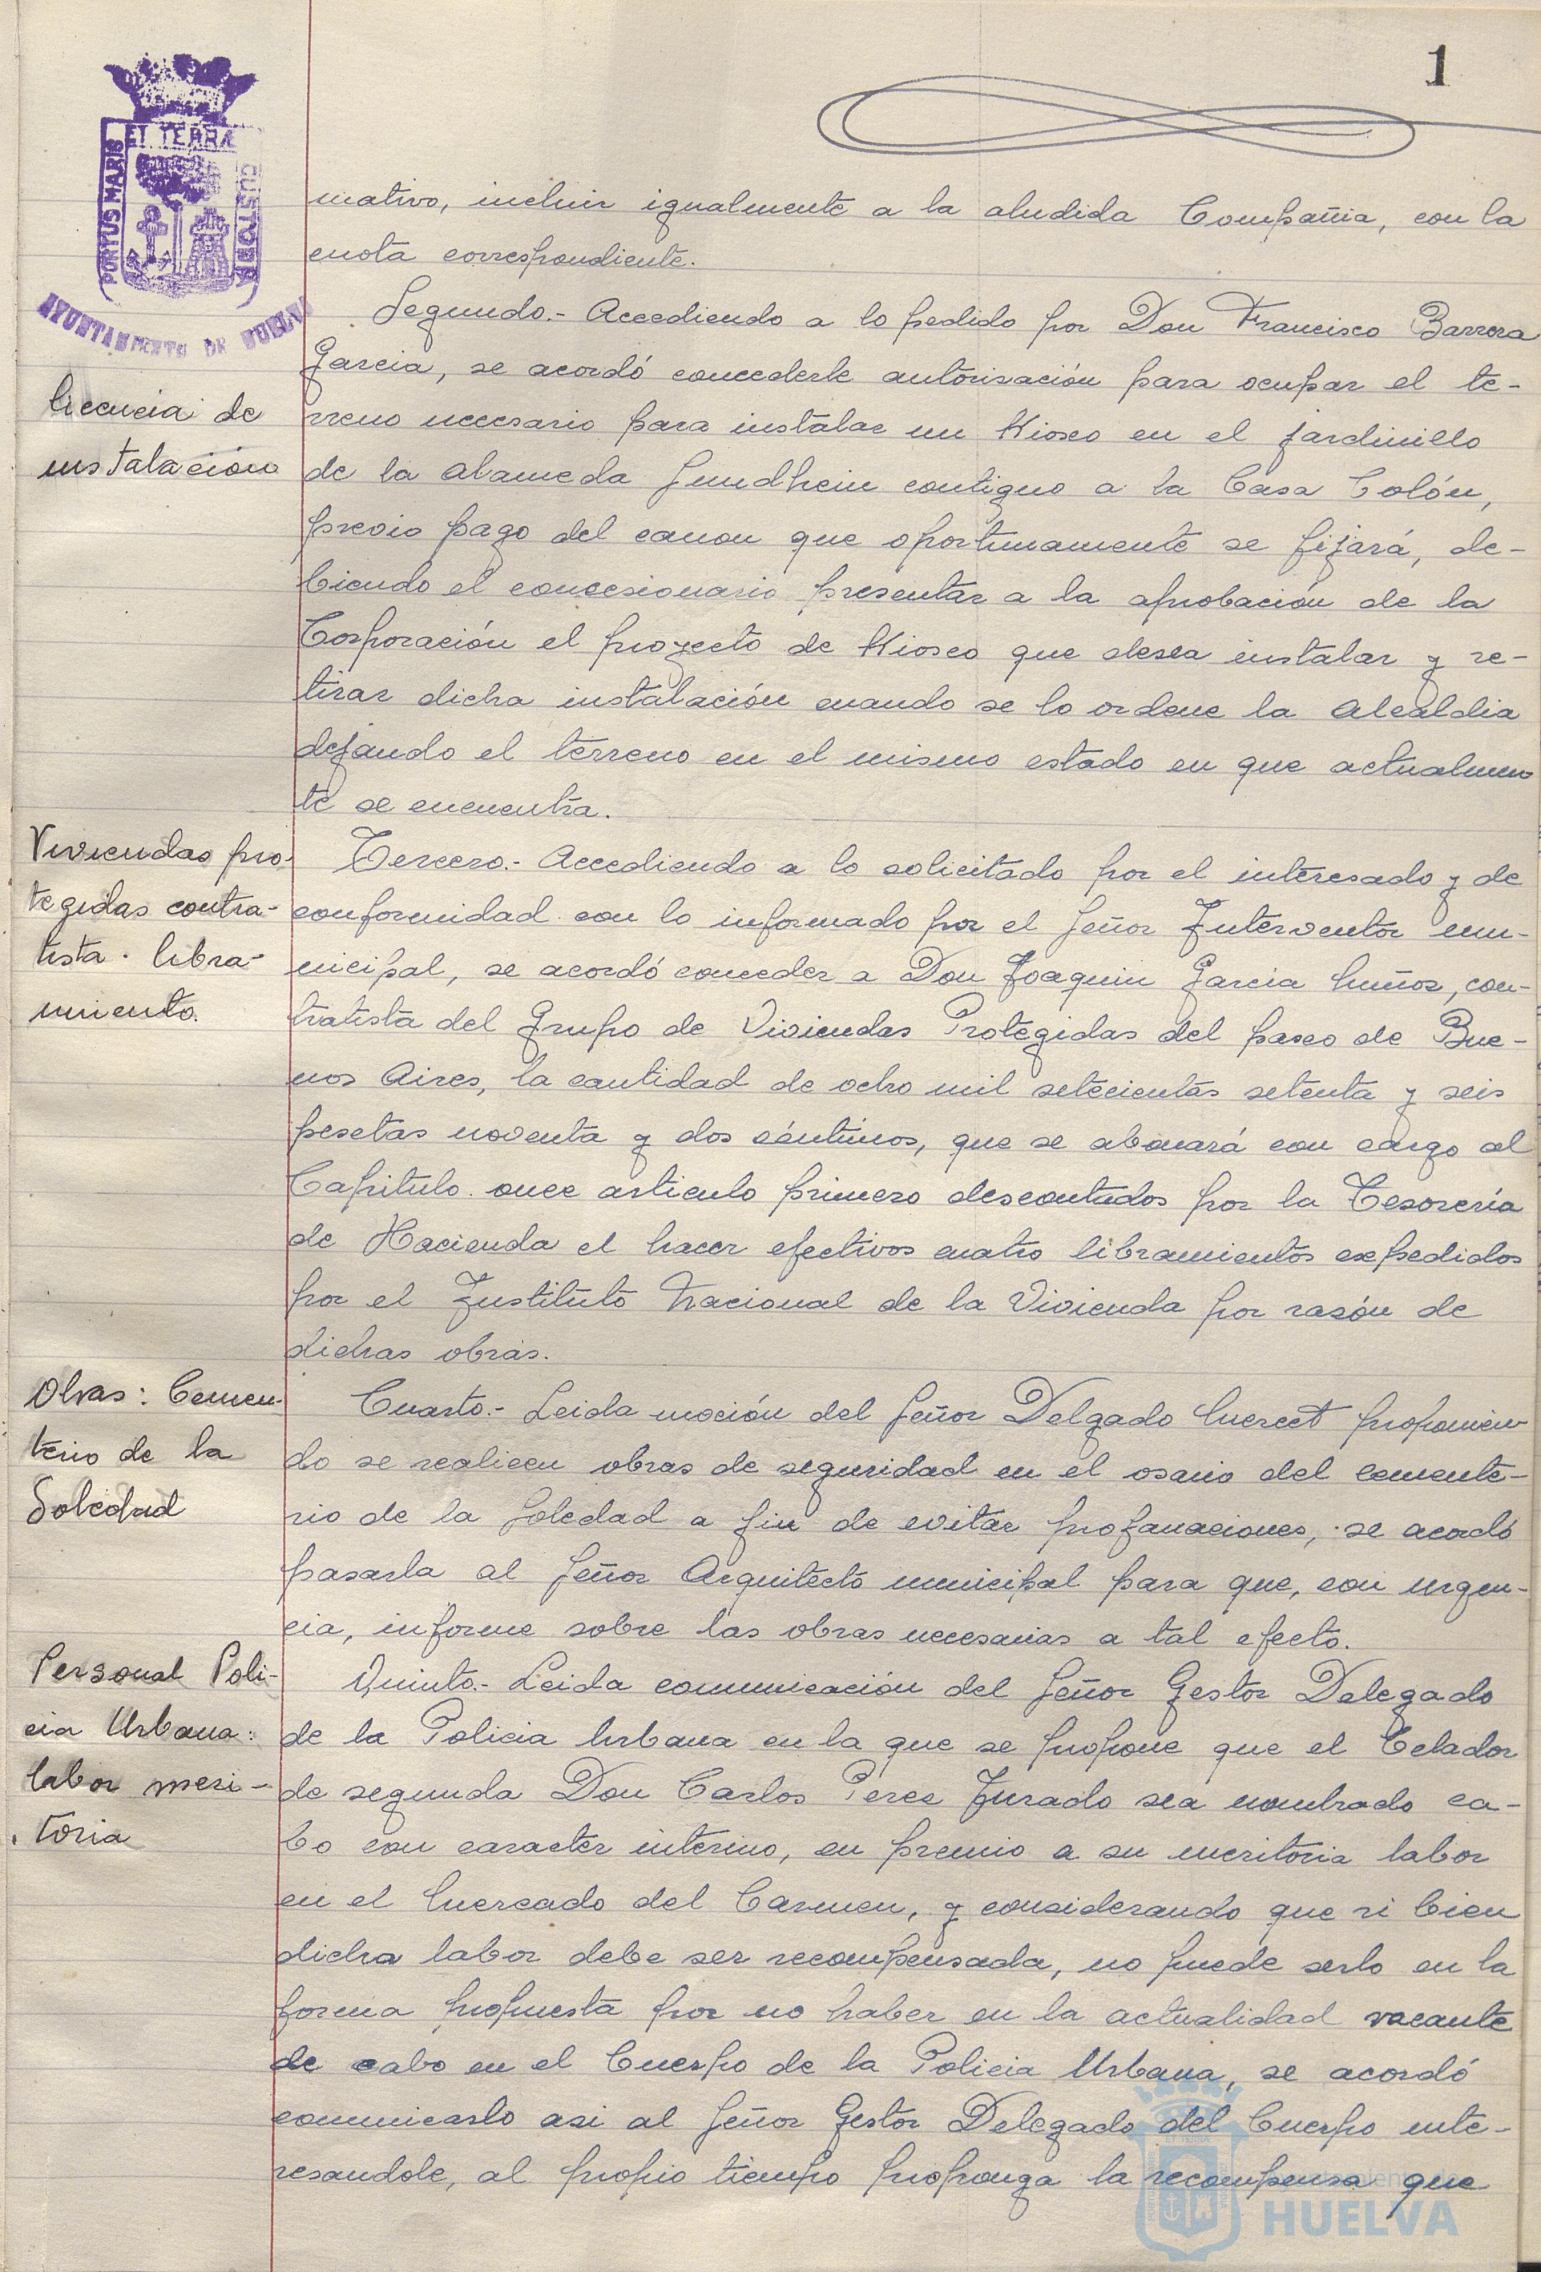 1
ET TERRÆ
PORTUS MARIS
CUSTODIA
AYUNTAMIENTO DE HUELVA
mativo, incluir igualmente a la aludida Compañia, con la
cuota correspondiente.
Licencia de
instalación
Segundo.- Accediendo a lo pedido por Don Francisco Barrera
Garcia, se acordó concederle autorización para ocupar el te-
rreno necesario para instalar un Kiosco en el jardinillo
de la Alameda Sundhein contiguo a la Casa Colón,
previo pago del canon que oportunamente se fijará, de-
biendo el concesionario presentar a la aprobación de la
Corporación el proyecto de Kiosco que desea instalar y re-
tirar dicha instalación cuando se lo ordene la Alcaldia
dejando el terreno en el mismo estado en que actualmen
te se encuentra.
Viviendas pro-
tegidas contra-
tista. libra-
miento.
Tercero.- Accediendo a lo solicitado por el interesado y de
conformidad con lo informado por el Señor Interventor mu-
nicipal, se acordó conceder a Don Joaquin Garcia Muñoz, con-
tratista del Grupo de Viviendas Protegidas del paseo de Bue-
nos Aires, la cantidad de ocho mil setecientas setenta y seis
pesetas noventa y dos céntimos, que se abonará con cargo al
Capitulo once articulo primero descontados por la Tesorería
de Hacienda el hacer efectivos cuatro libramientos expedidos
por el Instituto Nacional de la Vivienda por razón de
dichas obras.
Obras: Cemen-
terio de la
Soledad
Cuarto.- Leida moción del Señor Delgado Mercet proponien-
do se realicen obras de seguridad en el osario del cemente-
rio de la Soledad a fin de evitar profanaciones, se acordó
pasarla al Señor Arquitecto municipal para que, con urgen-
cia, informe sobre las obras necesarias a tal efecto.
Personal Poli-
cia Urbana:
labor meri-
toria
Quinto.- Leida comunicación del Señor Gestor Delegado
de la Policia Urbana en la que se propone que el Celador
de segunda Don Carlos Perez Jurado sea nombrado ca-
bo con caracter interino, en premio a su meritoria labor
en el Mercado del Carmen, y considerando que si bien
dicha labor debe ser recompensada, no puede serlo en la
forma propuesta por no haber en la actualidad vacante
de cabo en el Cuerpo de la Policia Urbana, se acordó
comunicarlo asi al Señor Gestor Delegado del Cuerpo inte-
resandole, al propio tiempo proponga la recompensa que
HUELVA